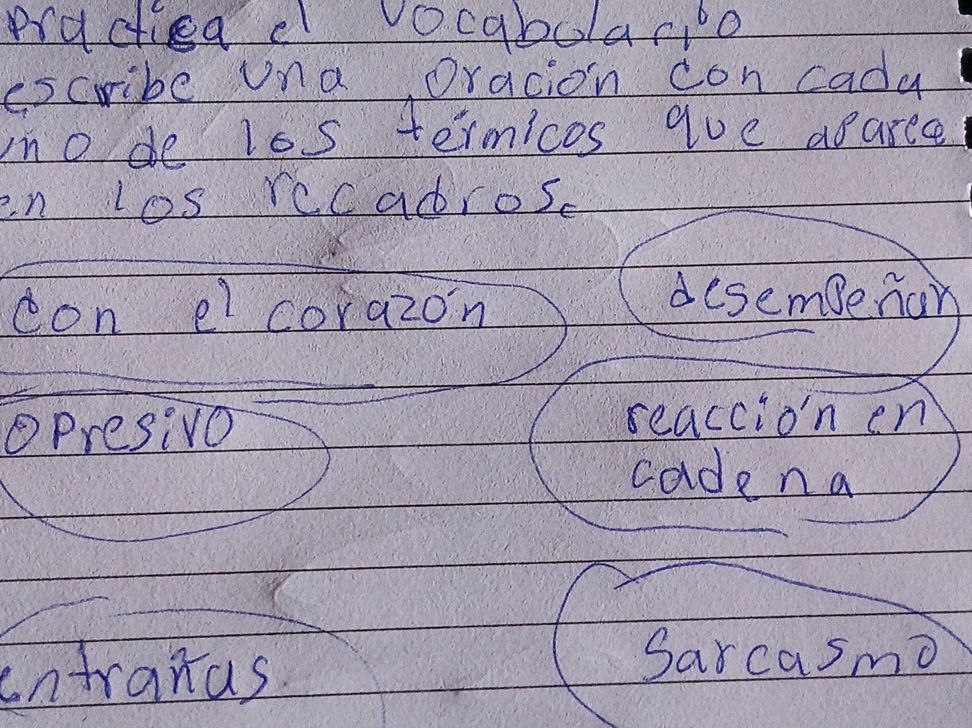 practica el vocabolario
escribe una oración con cada
uno de los térmicos que aparece
en los recadros.
con el corazón
desempeñar
opresivo
reacción en
cadena
entrañas
Sarcasmo